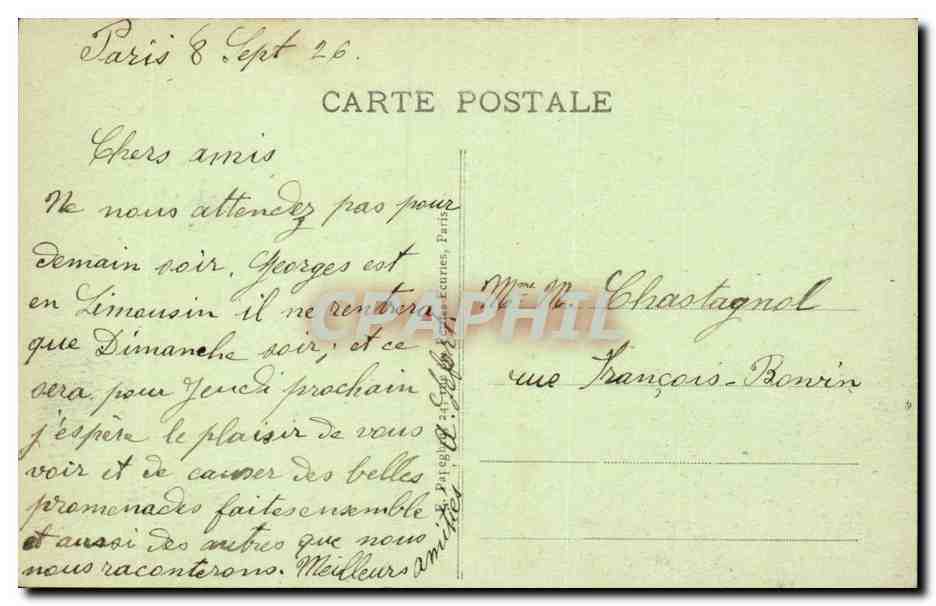 Paris 8 Sept 26.
CARTE POSTALE
Chers amis
Ne nous attendez pas pour
demain soir. Georges est
en Limousin il ne rentrera
que Dimanche soir, et ce
sera pour Jeudi prochain
j'espère le plaisir de vous
voir et de causer des belles
promenades faites ensemble
et aussi des autres que nous
nous raconterons. Meilleurs
amitiés.
Ecuries, Paris
CPAPHIL
Mme N. Chastagnol
rue François-Bonvin